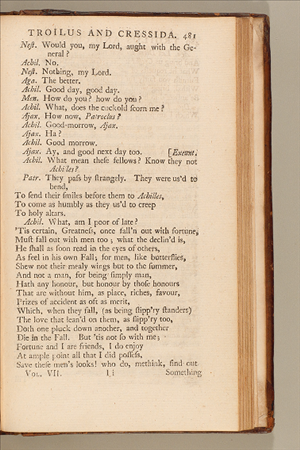 TROILUS AND CRESSIDA. 481
Neſt. Would you, my Lord, aught with the Ge-
neral?
Achil. No.
Neſt. Nothing, my Lord.
Aga. The better.
Achil. Good day, good day.
Men. How do you? how do you?
Achil. What, does the cuckold ſcorn me?
Ajax. How now, Patroclus?
Achil. Good-morrow, Ajax.
Ajax. Ha?
Achil. Good morrow.
Ajax. Ay, and good next day too. [Exeunt.
Achil. What mean theſe fellows? Know they not
Achilles?
Patr. They paſs by ſtrangely. They were us'd to
bend,
To ſend their ſmiles before them to Achilles,
To come as humbly as they us'd to creep
To holy altars.
Achil. What, am I poor of late?
'Tis certain, Greatneſs, once fall'n out with fortune,
Muſt fall out with men too; what the declin'd is,
He ſhall as ſoon read in the eyes of others,
As feel in his own Fall; for men, like butterflies,
Shew not their mealy wings but to the ſummer,
And not a man, for being ſimply man,
Hath any honour, but honour by thoſe honours
That are without him, as place, riches, favour,
Prizes of accident as oft as merit,
Which, when they fall, (as being ſlipp'ry ſtanders)
The love that lean'd on them, as ſlipp'ry too,
Doth one pluck down another, and together
Die in the Fall. But 'tis not ſo with me;
Fortune and I are friends, I do enjoy
At ample point all that I did poſſeſs,
Save theſe men's looks! who do, methink, find out
Vol. VII. I i Something